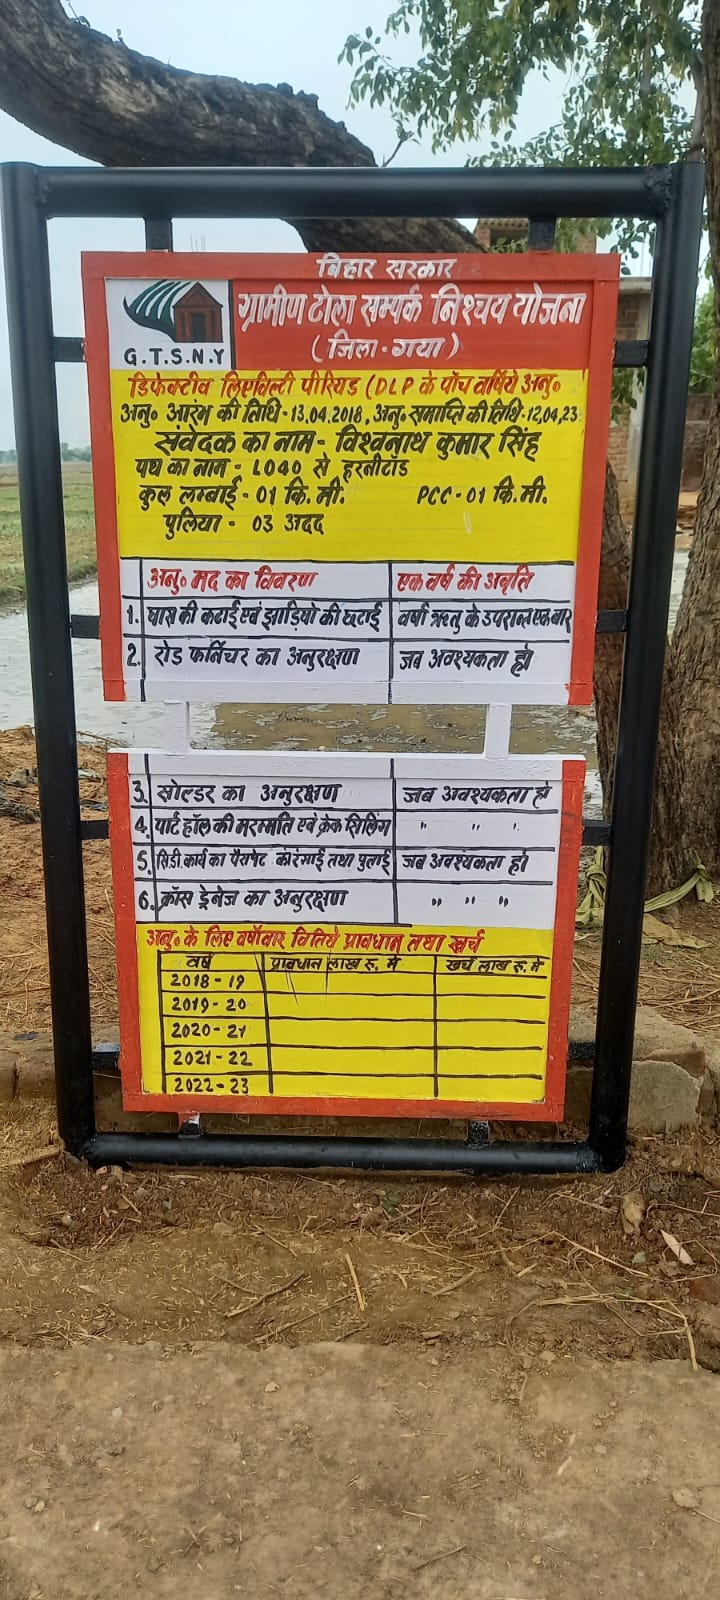 बिहार सरकार
G.T.S.N.Y
ग्रामीण टोला सम्पर्क निश्चय योजना
(जिला-गया)
डिफेक्टीव लिएविल्टी पीरियड (DLP के पाँच वर्षिये अनु॰
अनु॰ आरंभ की तिथि-13.04.2018, अनु॰ समाप्ति की तिथि-12.04.23
संवेदक का नाम- विश्वनाथ कुमार सिंह
पथ का नाम - L040 से हरनीटांड
कुल लम्बाई - 01 कि.मी. PCC-01 कि.मी.
पुलिया - 03 अदद
अनु॰ मद का विवरण एक वर्ष की अवृति
1. घास की कटाई एवं झाड़ियो की छटाई वर्षा ऋतु के उपरान्त एक बार
2. रोड फर्निचर का अनुरक्षण जब अवश्यकता हो
3. सोल्डर का अनुरक्षण जब अवश्यकता हो
4. पार्ट हॉल की मरम्मति एवं क्रेक सिलिंग " " "
5. सि.डी. कार्य का पैरापेट की रंगाई तथा पुताई जब अवश्यकता हो
6. क्रॉस ड्रेनेज का अनुरक्षण " " "
अनु॰ के लिए वर्षावार वितिये प्रावधान तथा खर्च
वर्ष प्रावधान लाख रु. मे खर्च लाख रु. मे
2018-19
2019-20
2020-21
2021-22
2022-23